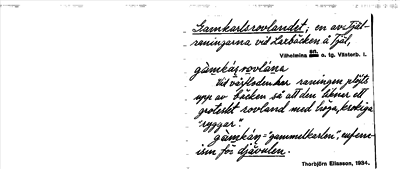 Gamkarlsrovlandet; en av Tjäl-
raningarna vid Lerbäcken å Tjäl,
Vilhelmina sn. o. tg. Västerb. l.
gàmkáṣrovlána
Vid vårfloden har raningen plöjts
upp av bäcken så att den liknar ett
groteskt rovland med höga, krokiga
"ryggar".
gàmkáṇ = "gammelkarlen", eufem-
ism för djävulen.
Thorbjörn Eliasson, 1934.